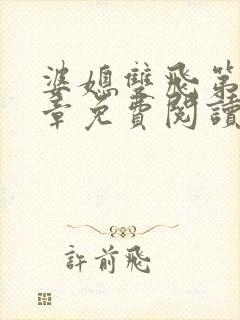 婆媳雙飛第
章免費閱讀
許前飛